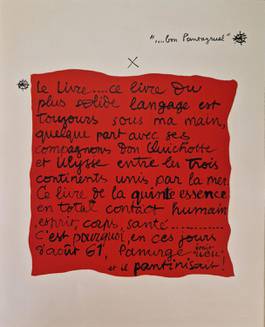 "....bon Pantagruel"
Le Livre.....ce livre du
plus solide langage est
toujours sous ma main,
quelque part avec ses
compagnons Don Quichotte
et Ulysse entre les trois
continents unis par la mer.
Ce livre de la quinte essence
en total contact humain
esprit, corps, santé............
C'est pourquoi, en ces jours
d'août 61, Panurge
et le